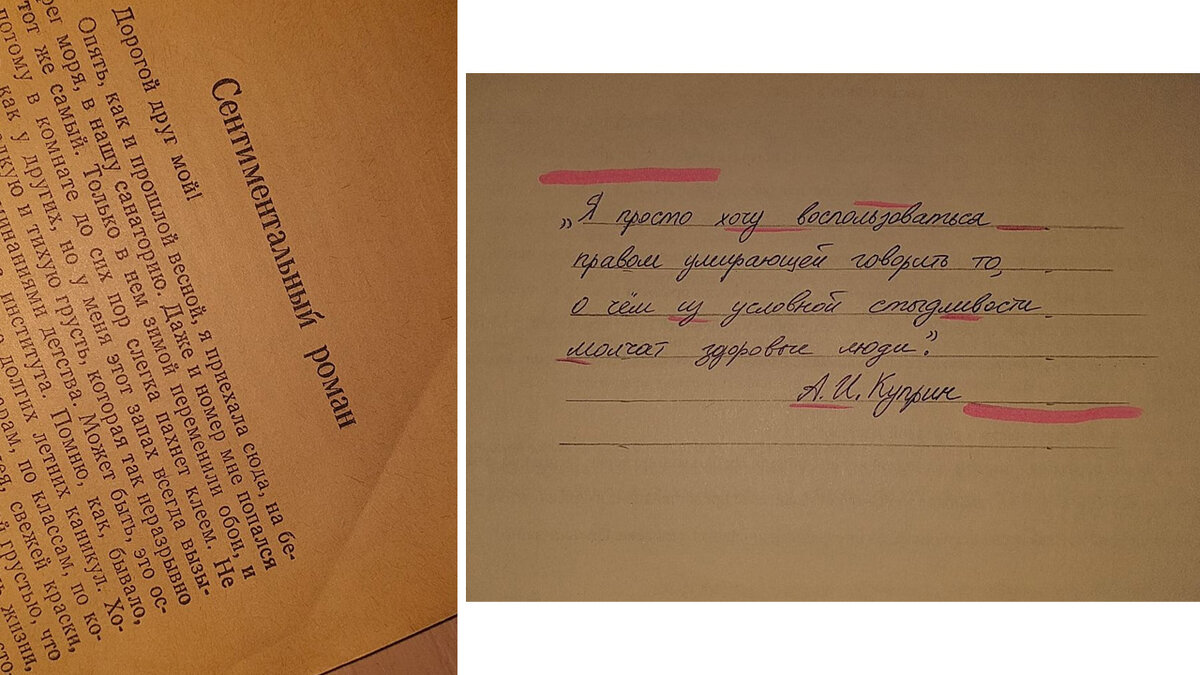 Сентиментальный роман
Дорогой друг мой!
Опять, как и прошлой весной, я приехала сюда, на бе-
рег моря, в нашу санаторию. Даже и номер мне попался
тот же самый. Только в нем зимой переменили обои, и
потому в комнате до сих пор слегка пахнет клеем. Не
как у других, но у меня этот запах всегда вызы-
и тихую грусть, которая так неразрывно
детства. Может быть, это ос-
института. Помню, как, бывало,
долгих летних каникул. Хо-
по классам, по ко-
свежей краски,
грустью, что
жизни,
„Я просто хочу воспользоваться
правом умирающей говорить то,
о чём из условной стыдливости
молчат здоровые люди."
А.И.Куприн